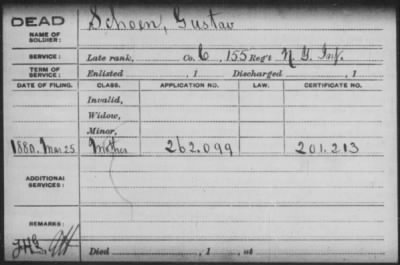 DEAD
NAME OF SOLDIER: Schoen, Gustav
SERVICE: Late rank, Co. C, 155 Reg't N.Y. Inf.
TERM OF SERVICE: Enlisted , 1 Discharged , 1
DATE OF FILING. CLASS. APPLICATION NO. LAW. CERTIFICATE NO.
Invalid,
Widow,
Minor,
1880. Mar. 25 Mother 262.099 201.213
ADDITIONAL SERVICES:
REMARKS:
Died , 1 , at